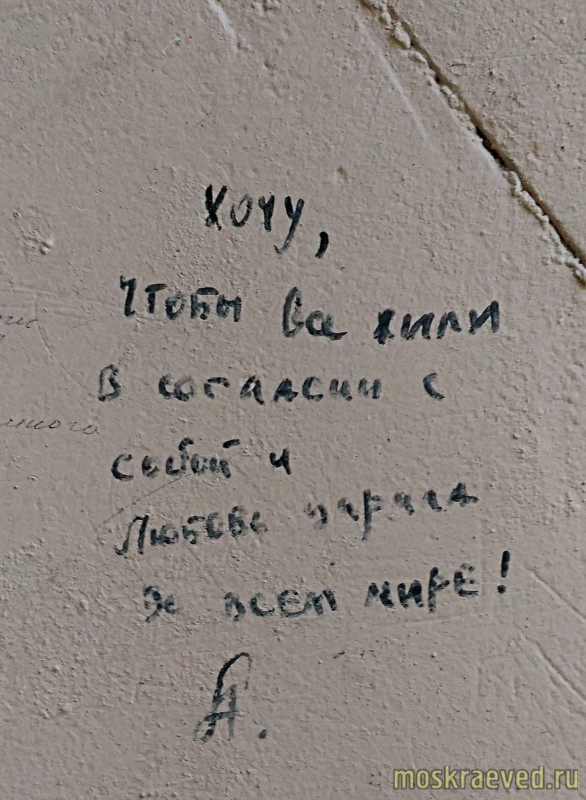 Хочу,
чтобы все жили
в согласии с
собой и
Любовь царила
во всем мире!
А.
много
moskraeved.ru